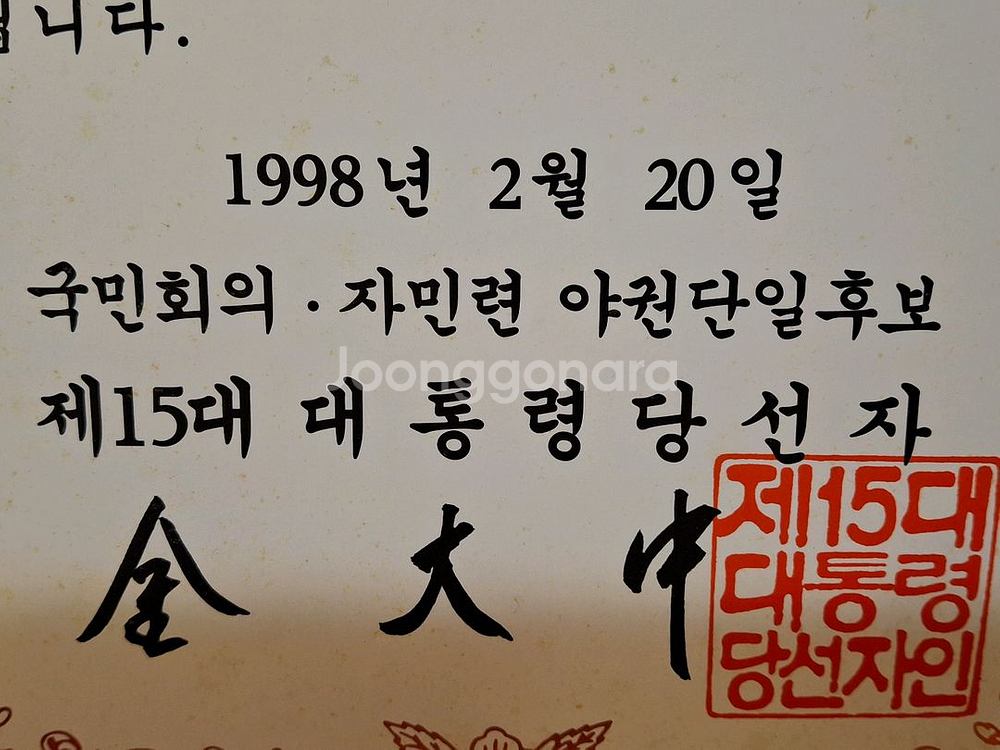 니다.
1998년 2월 20일
국민회의·자민련 야권단일후보
제15대 대통령당선자
金大中
제15대
대통령
당선자인
loonggonara